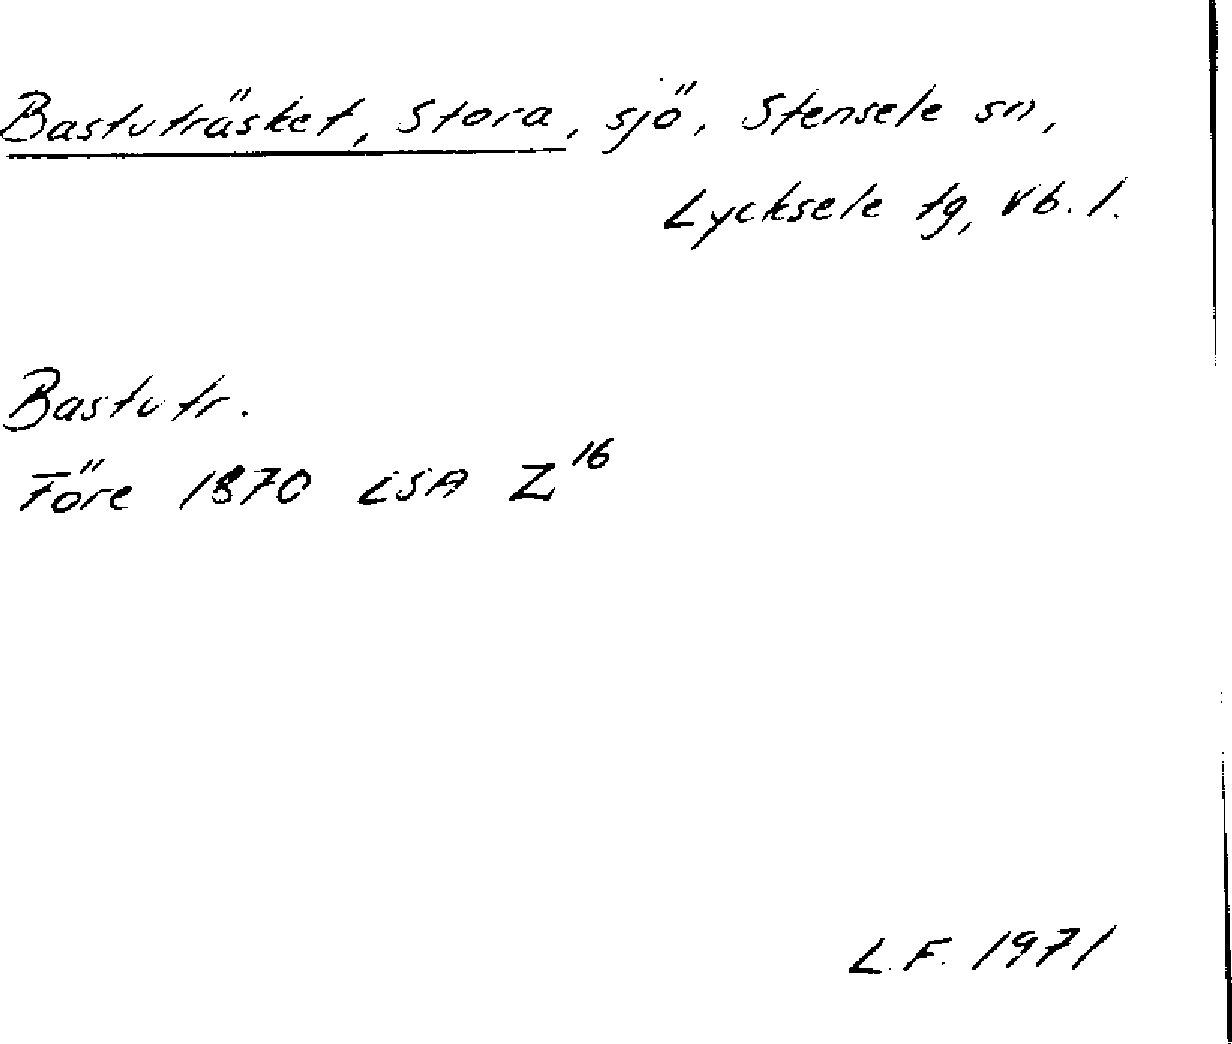 Bastuträsket, Stora, sjö, Stensele sn,
Lycksele tg, Vb. l.
Bastutr.
Före 1870 LSA Z16
L.F. 1971